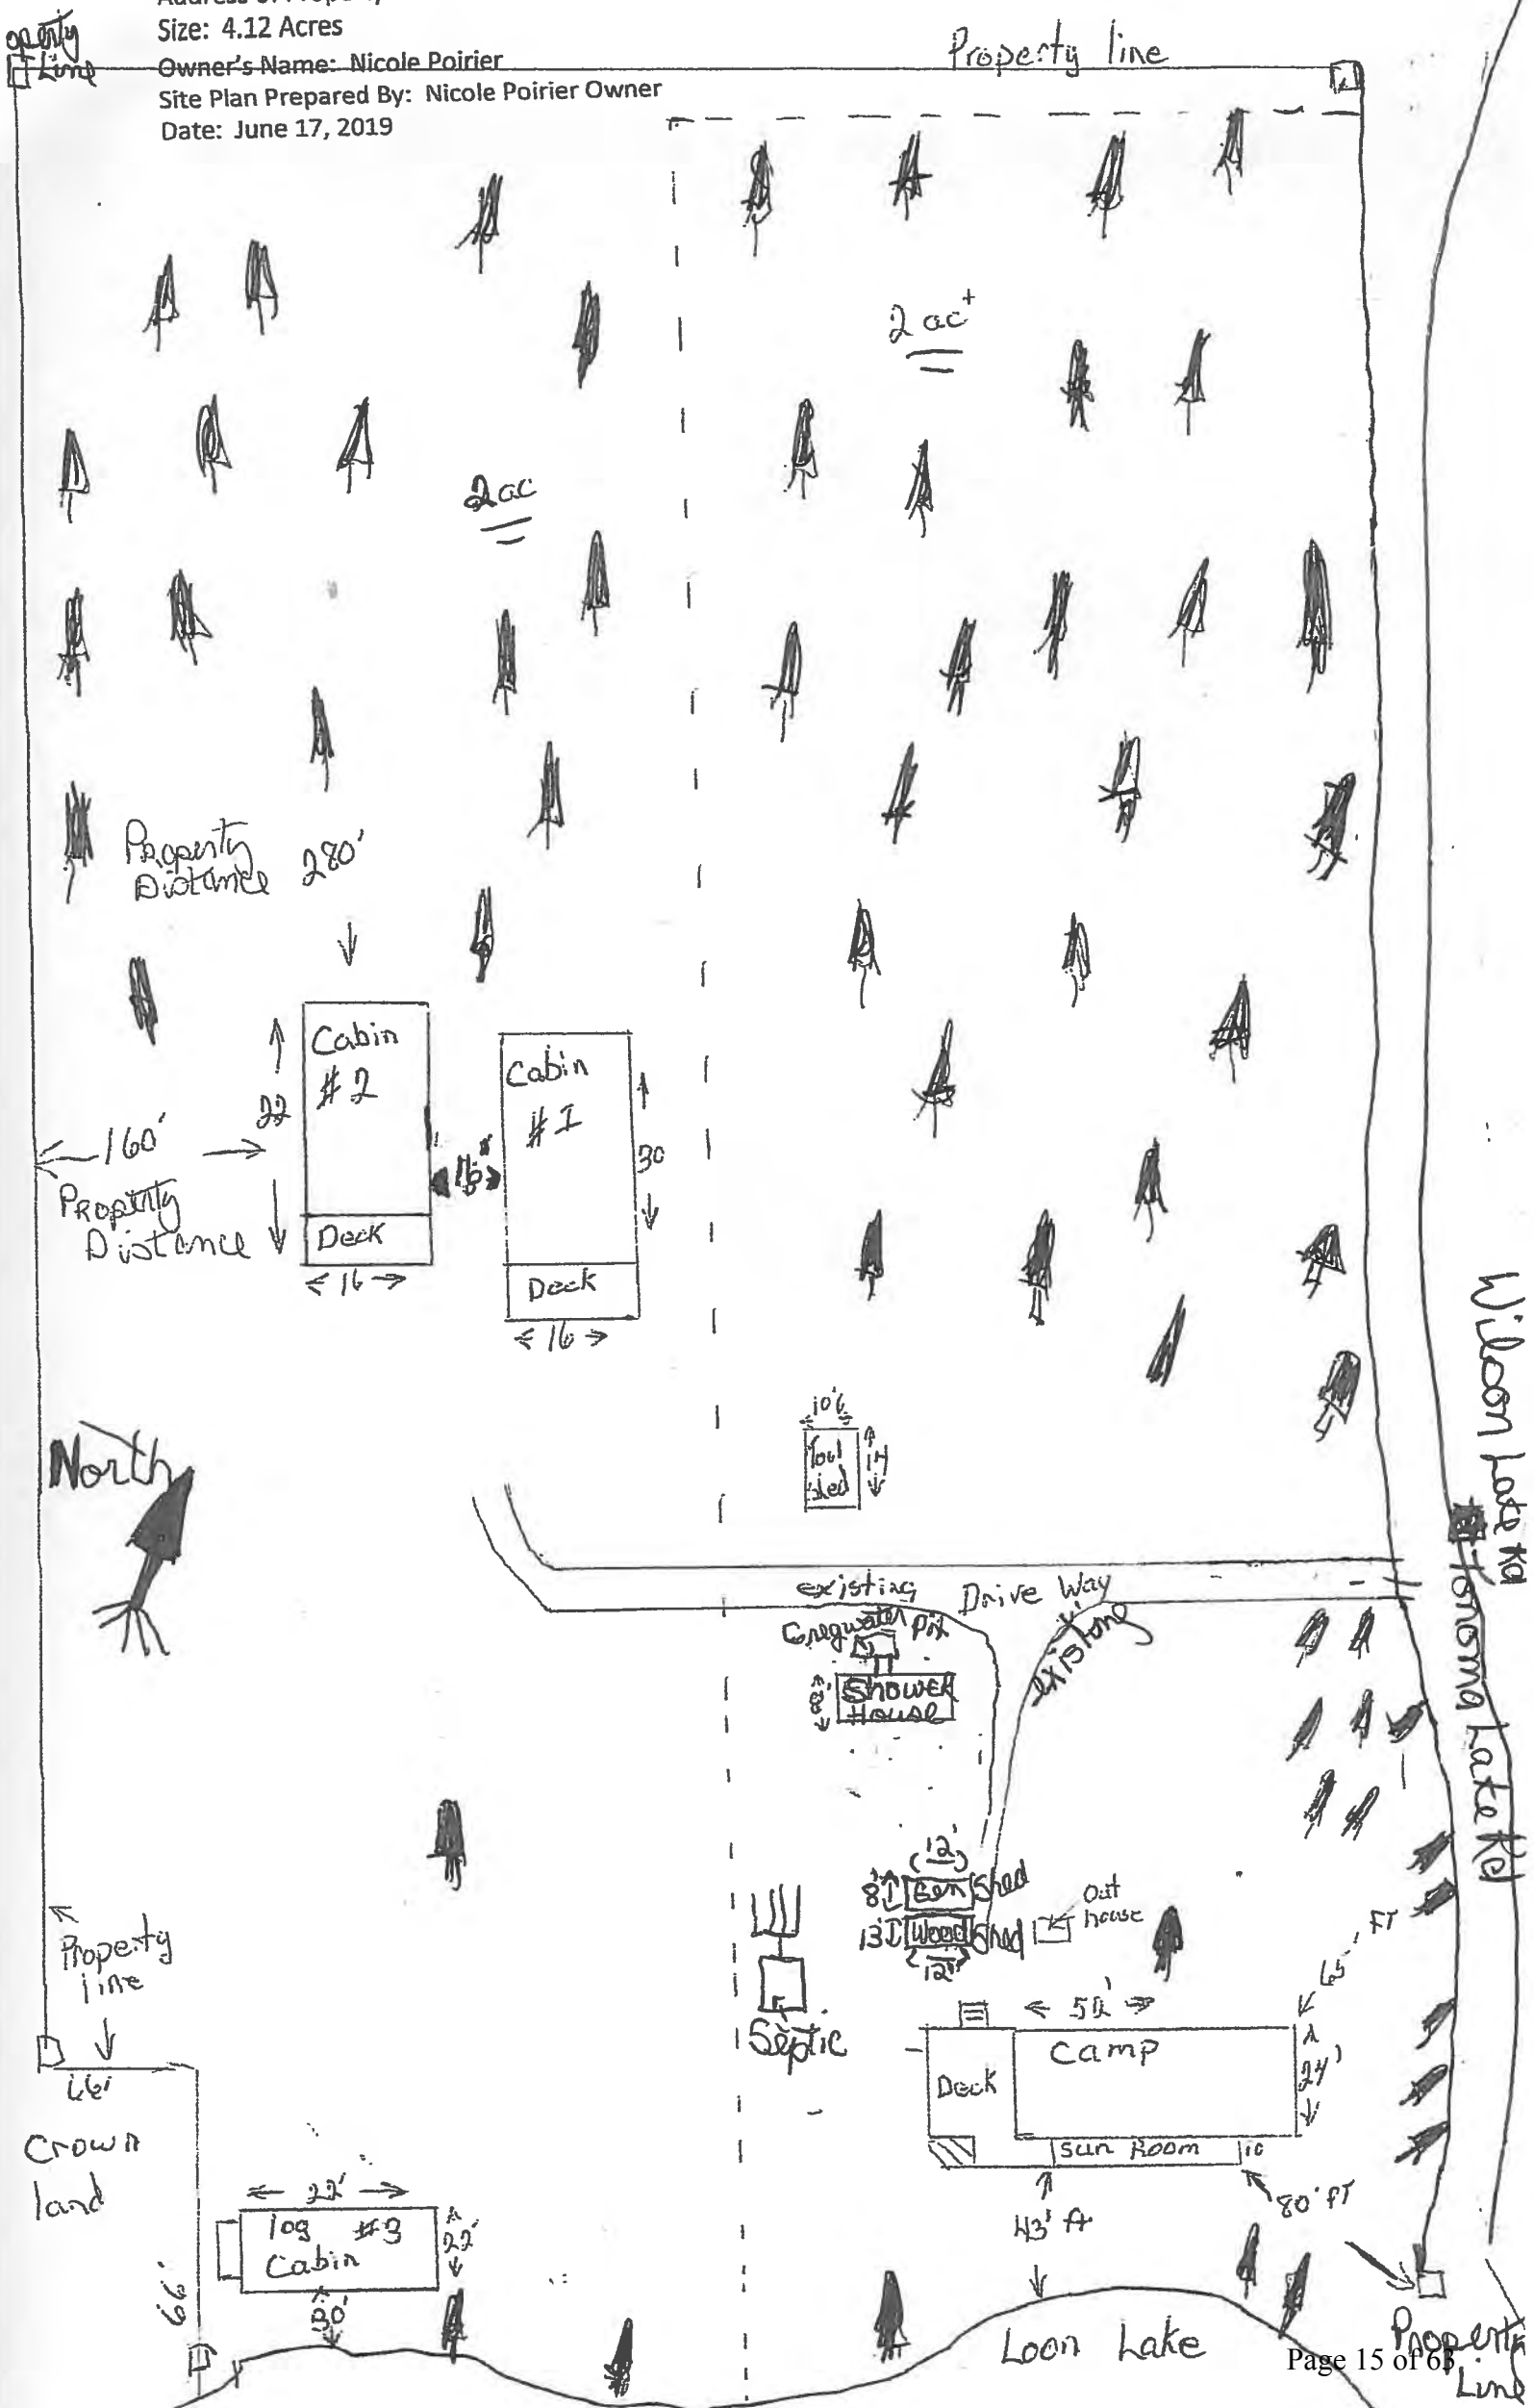 Size: 4.12 Acres
Owner's Name: Nicole Poirier
Site Plan Prepared By: Nicole Poirier Owner
Date: June 17, 2019
operty
Line
Property line
2 ac+
2 ac
Property
Distance 280'
Cabin
#2
22
Deck
< 16 >
Cabin
#1
30
Deck
< 16 >
160'
Property
Distance
North
10'6
Tool
shed
14
existing Drive Way
existing
Greywater Pit
8'
Shower
House
Wilson Lake Rd
Lake Rd
12'
8' Gen Shed
13' Wood Shed
12'
Out
house
Septic
65' FT
Camp
Deck
24'
Sun Room 10
43' ft
80' FT
Property
line
66'
Crown
land
66'
22'
log #3
Cabin
22'
30'
Loon Lake
Property
Line
Page 15 of 63